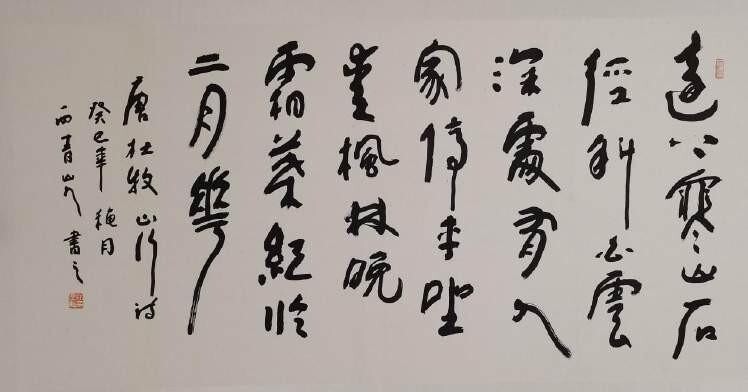 遠上寒山石
徑斜白雲
深處有人
家停車坐
愛楓林晚
霜葉紅於
二月華
唐杜牧山行詩
癸巳年穐月
青山人書之